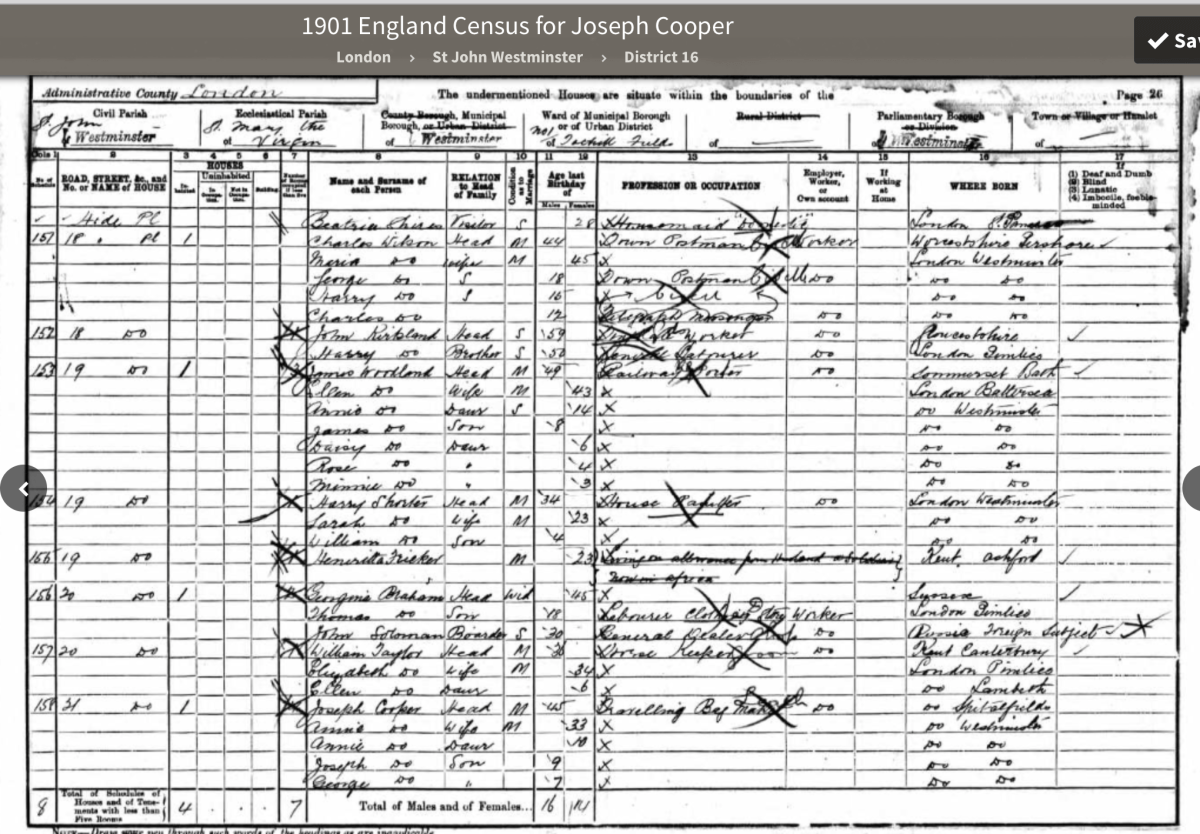 1901 England Census for Joseph Cooper
London › St John Westminster › District 16
✓ Sa
Administrative County London The undermentioned Houses are situate within the boundaries of the Page 26
Civil Parish Ecclesiastical Parish County Borough, Municipal Ward of Municipal Borough Rural District Parliamentary Borough Town or Village or Hamlet
St John St Mary the Borough, or Urban District or of Urban District or Division
of Westminster of Virgin of Westminster No 1 of Fields of of Westminster of
Cols 1 2 3 4 5 6 7 8 9 10 11 12 13 14 15 16 17
HOUSES
ROAD, STREET, &c., and No. or NAME of HOUSE Uninhabited Building Name and Surname of each Person RELATION to Head of Family Condition as to Marriage Age last Birthday of Males Females PROFESSION OR OCCUPATION Employer, Worker, or Own account If Working at Home WHERE BORN (1) Deaf and Dumb (2) Blind (3) Lunatic (4) Imbecile, feeble-minded
Pl Beatrice Visitor S 28 Housemaid London
151 18 " Pl 1 Charles Wilson Head M 44 Postman Worker Worcestshire Pershore
Maria Do Wife M 45 London Westminster
George Do S 18 Postman Do Do Do
Harry Do S 15 Do Do
Charles Do 12 Telegraph Messenger Do Do Do
152 18 Do John Kirkland Head S 59 Worker Do Gloucestshire
Harry Do Brother S 50 Labourer Do London Pimlico
153 19 Do 1 James Woodland Head M 49 Railway Porter Do Sommerset Bath
Ellen Do Wife M 43 London Battersea
Annie Do Daur S 14 Do Westminster
James Do Son 8 Do Do
Daisy Do Daur 6 Do Do
Rose Do " 4 Do Do
Minnie Do " 3 Do Do
154 19 Do Harry Shorter Head M 34 House Painter Do London Westminster
Sarah Do Wife M 23 Do Do
William Do Son 4 Do Do
155 19 Do Henrietta Fricker M 23 Living on allowance from Husband a Soldier Kent Ashford
Now in Africa
156 20 Do 1 Georgina Braham Head Wid 45 Sussex
Thomas Do Son 18 Labourer Worker London Pimlico
John Soloman Boarder S 30 General Dealer Do Russia Foreign Subject
157 20 Do William Taylor Head M Horse Keeper Do Kent Canterbury
Elizabeth Do Wife M 34 London Pimlico
Ellen Do Daur 6 Do Lambeth
158 21 Do 1 Joseph Cooper Head M 45 Travelling Bag Maker Do Do Spitalfields
Annie Do Wife M 33 Do Westminster
Annie Do Daur 10 Do Do
Joseph Do Son 9 Do Do
George Do " 7 Do Do
8 Total of Schedules of Houses and of Tenements with less than Five Rooms 4 7 Total of Males and of Females... 16 14